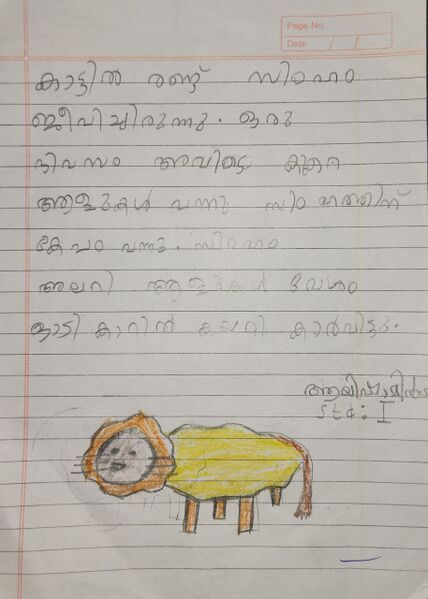 Page No.
Date / /
കാട്ടിൽ രണ്ട് സിംഹം
ജീവിച്ചിരുന്നു. ഒരു
ദിവസം അവിടെ കുറെ
ആളുകൾ വന്നു സിംഹത്തിന്
കേപം വന്നു. സിംഹം
അലറി ആളുകൾ വേഗം
ഓടി കാറിൻ കയറി കാർവിട്ടു.
Std: I